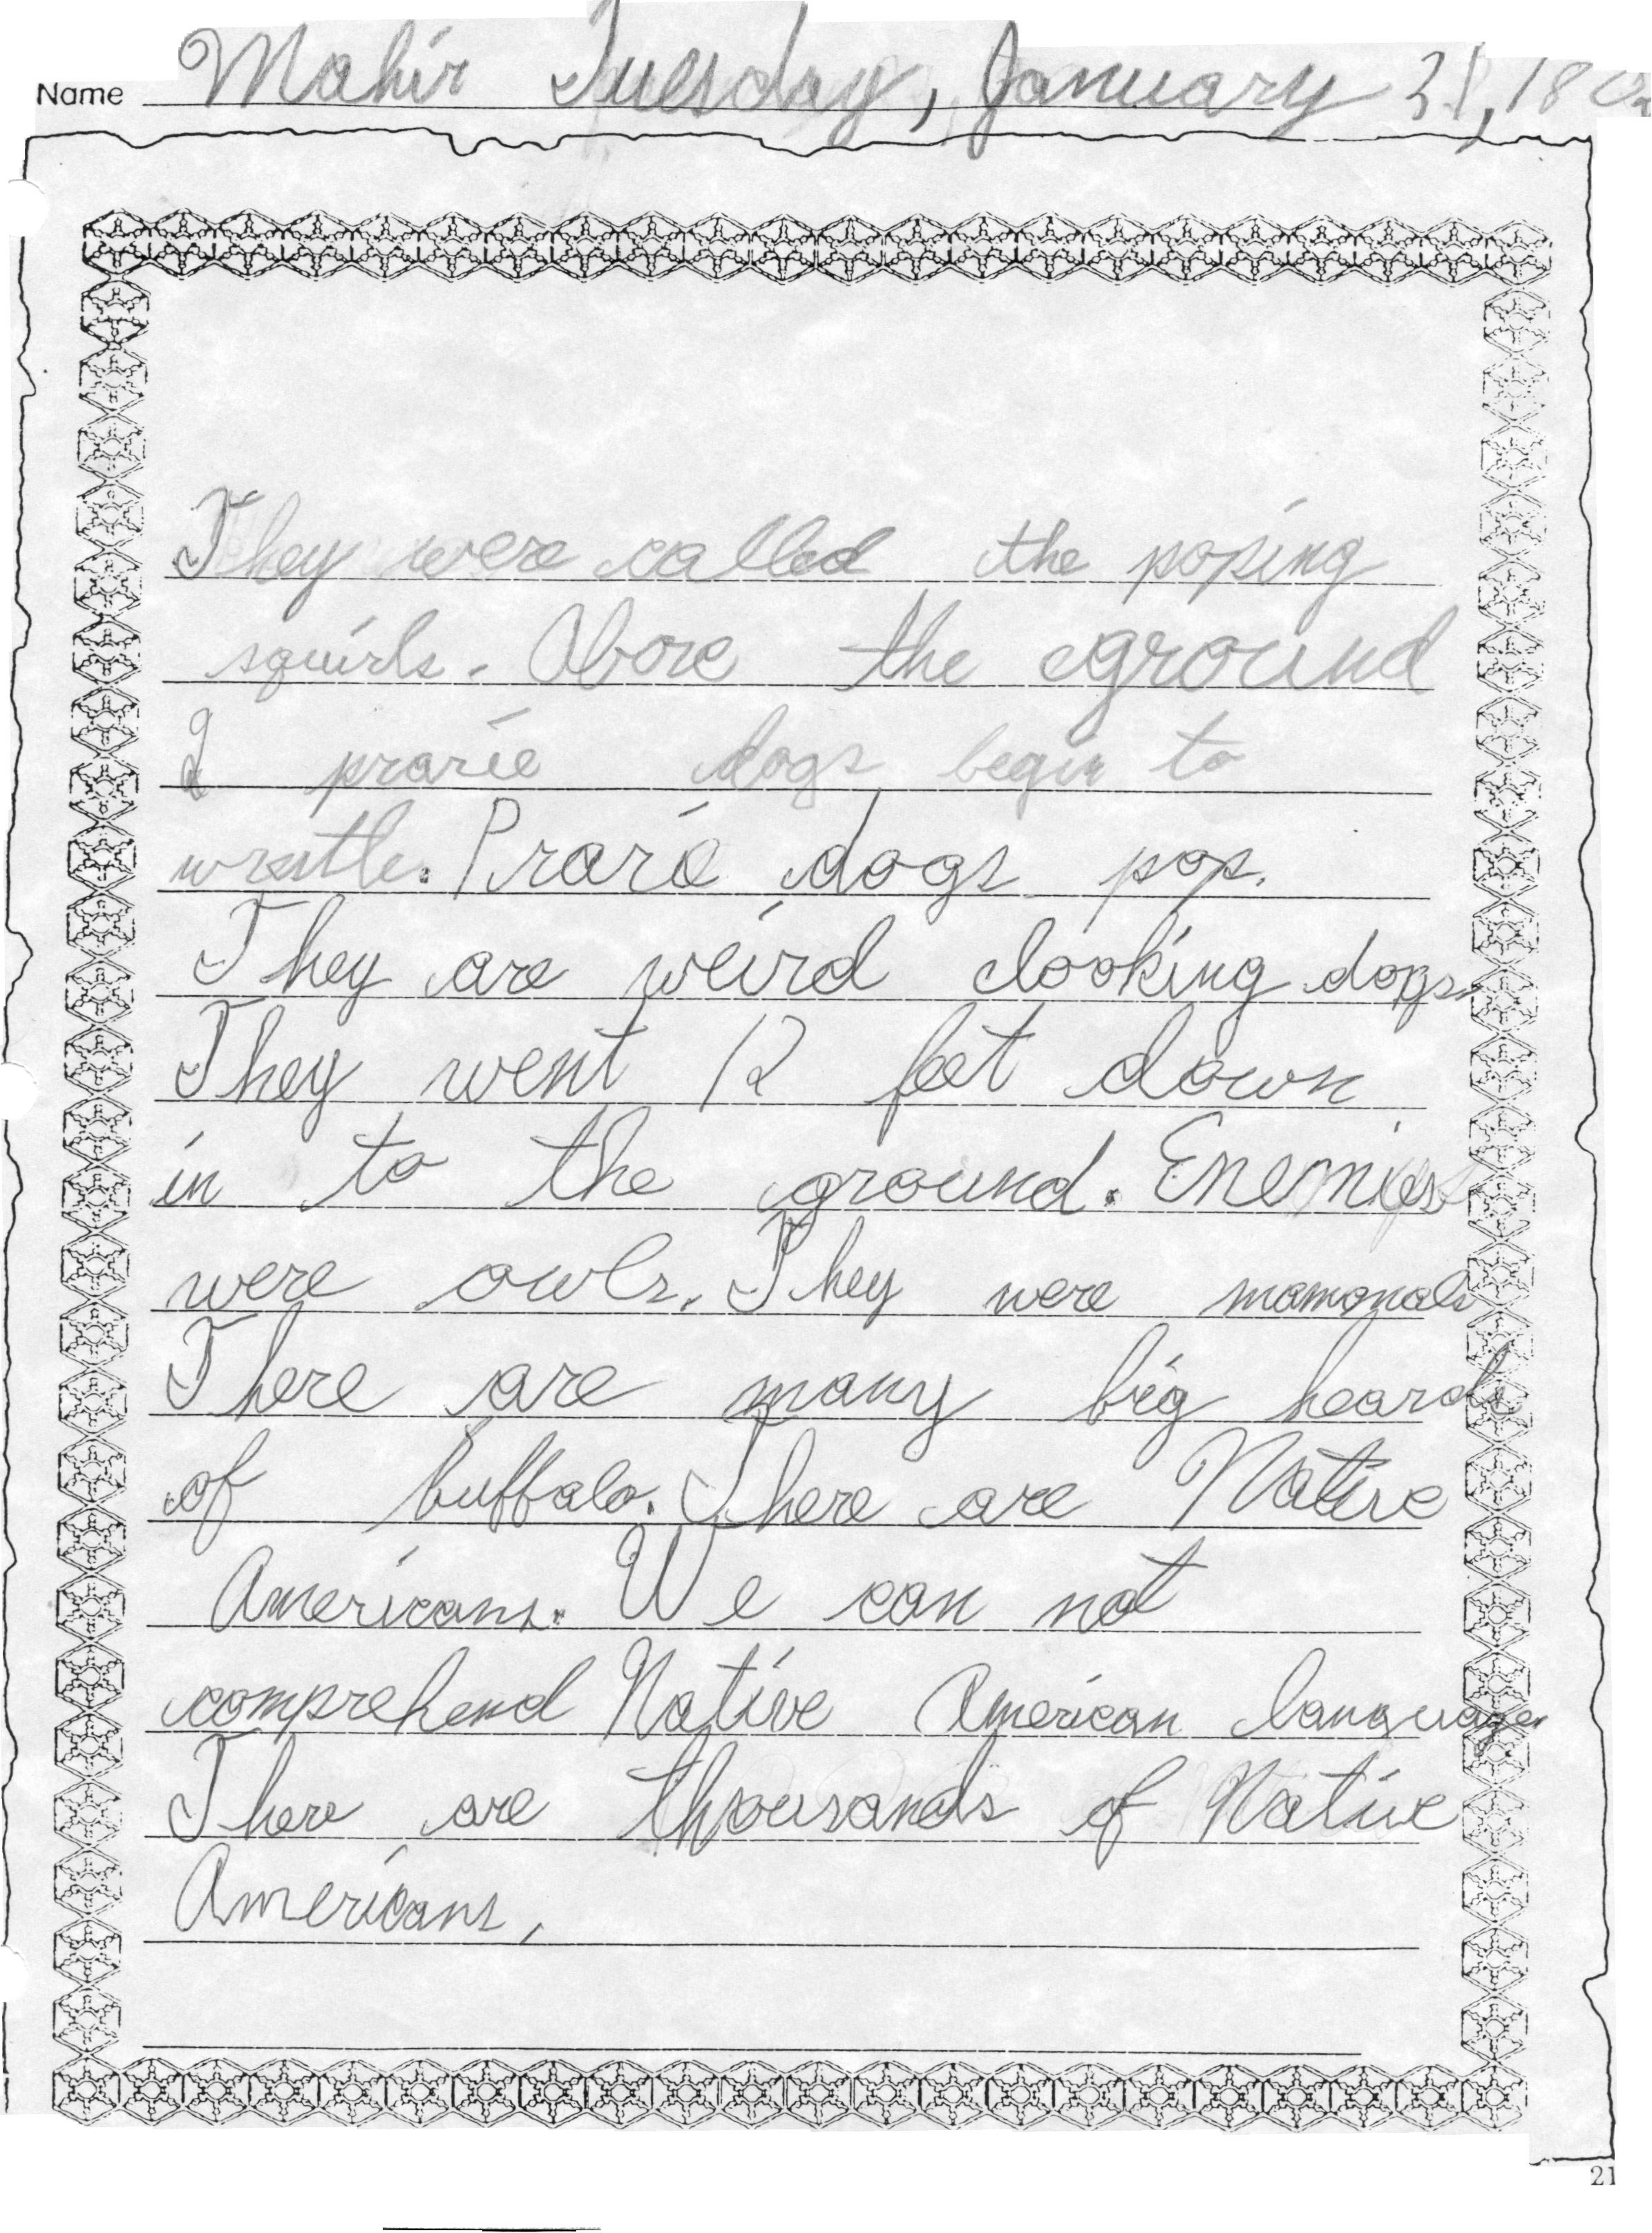 Name Mahir Tuesday, January 31, 18
They were called the poping
squirls. Above the ground
2 prarie dogs begin to
wrestle. Prarie dogs pop.
They are weird looking dogs.
They went 12 feet down
in to the ground. Enemies
were owls. They were mamonals
There are many big heards
of buffalo. There are Native
Americans. We can not
comprehend Native American languages
There are thousands of Native
Americans.
21